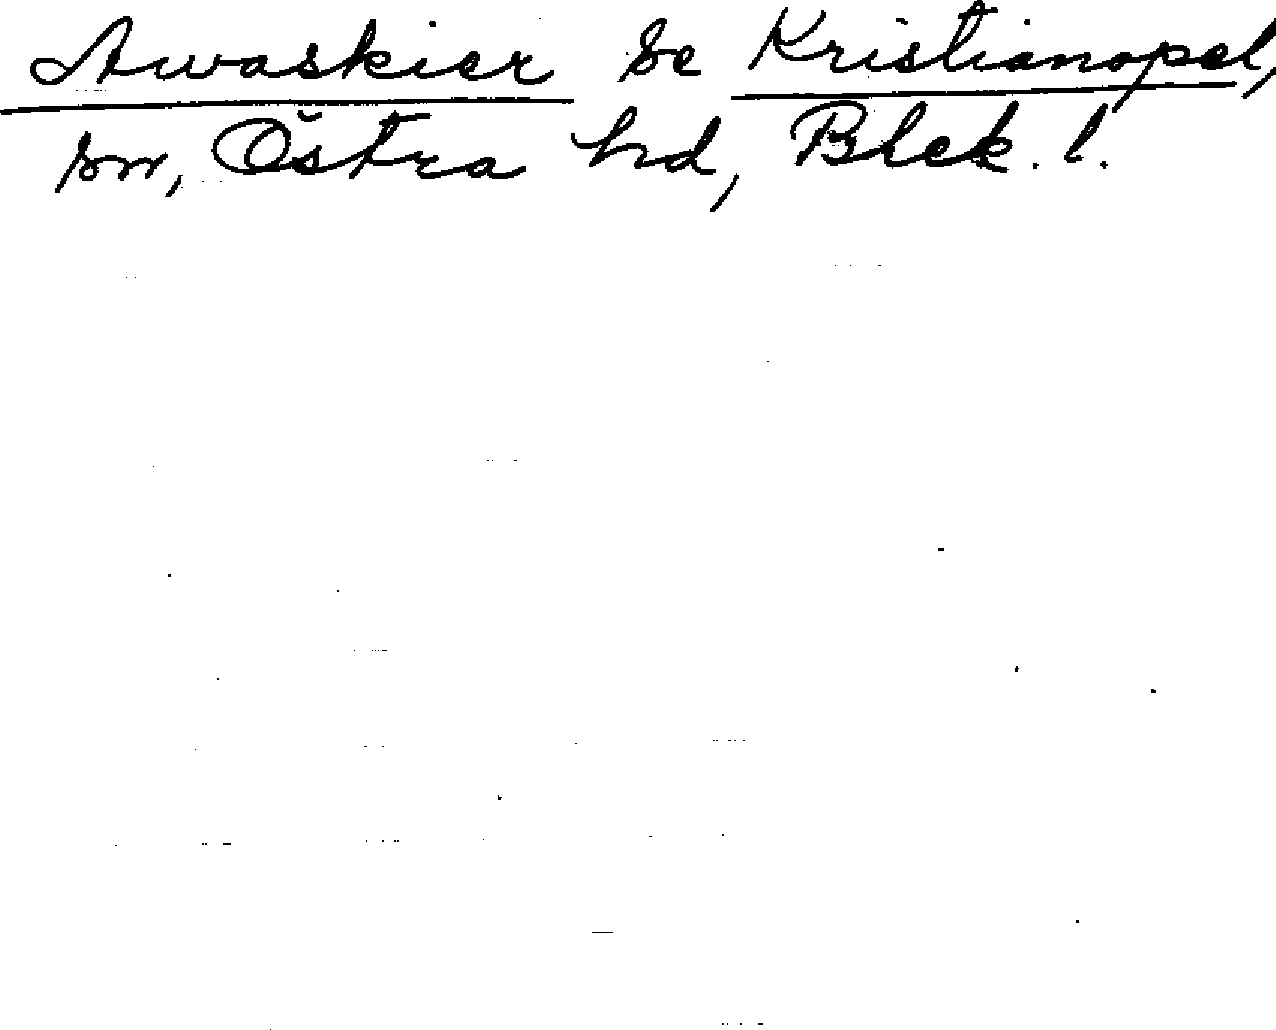 Awaskier se Kristianopel,
sn, Östra hd, Blek. l.